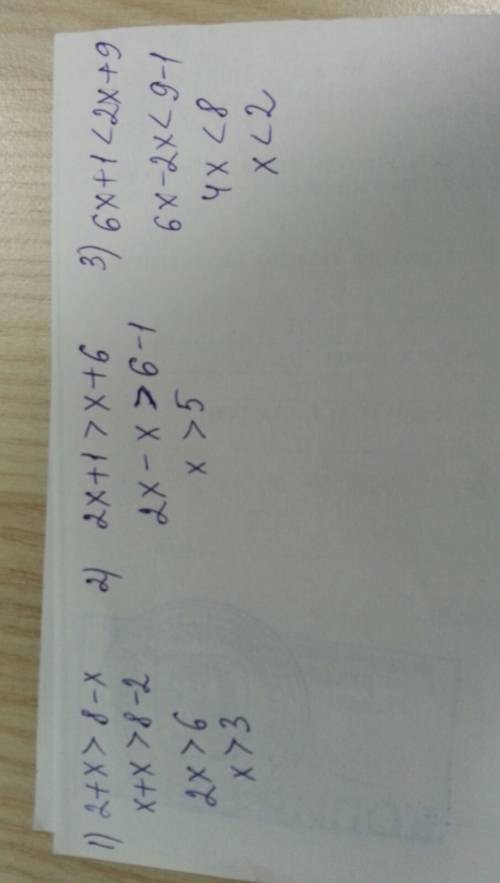 1) 2+x>8-x
x+x>8-2
2x>6
x>3
2) 2x+1>x+6
2x-x>6-1
x>5
3) 6x+1<2x+9
6x-2x<9-1
4x<8
x<2